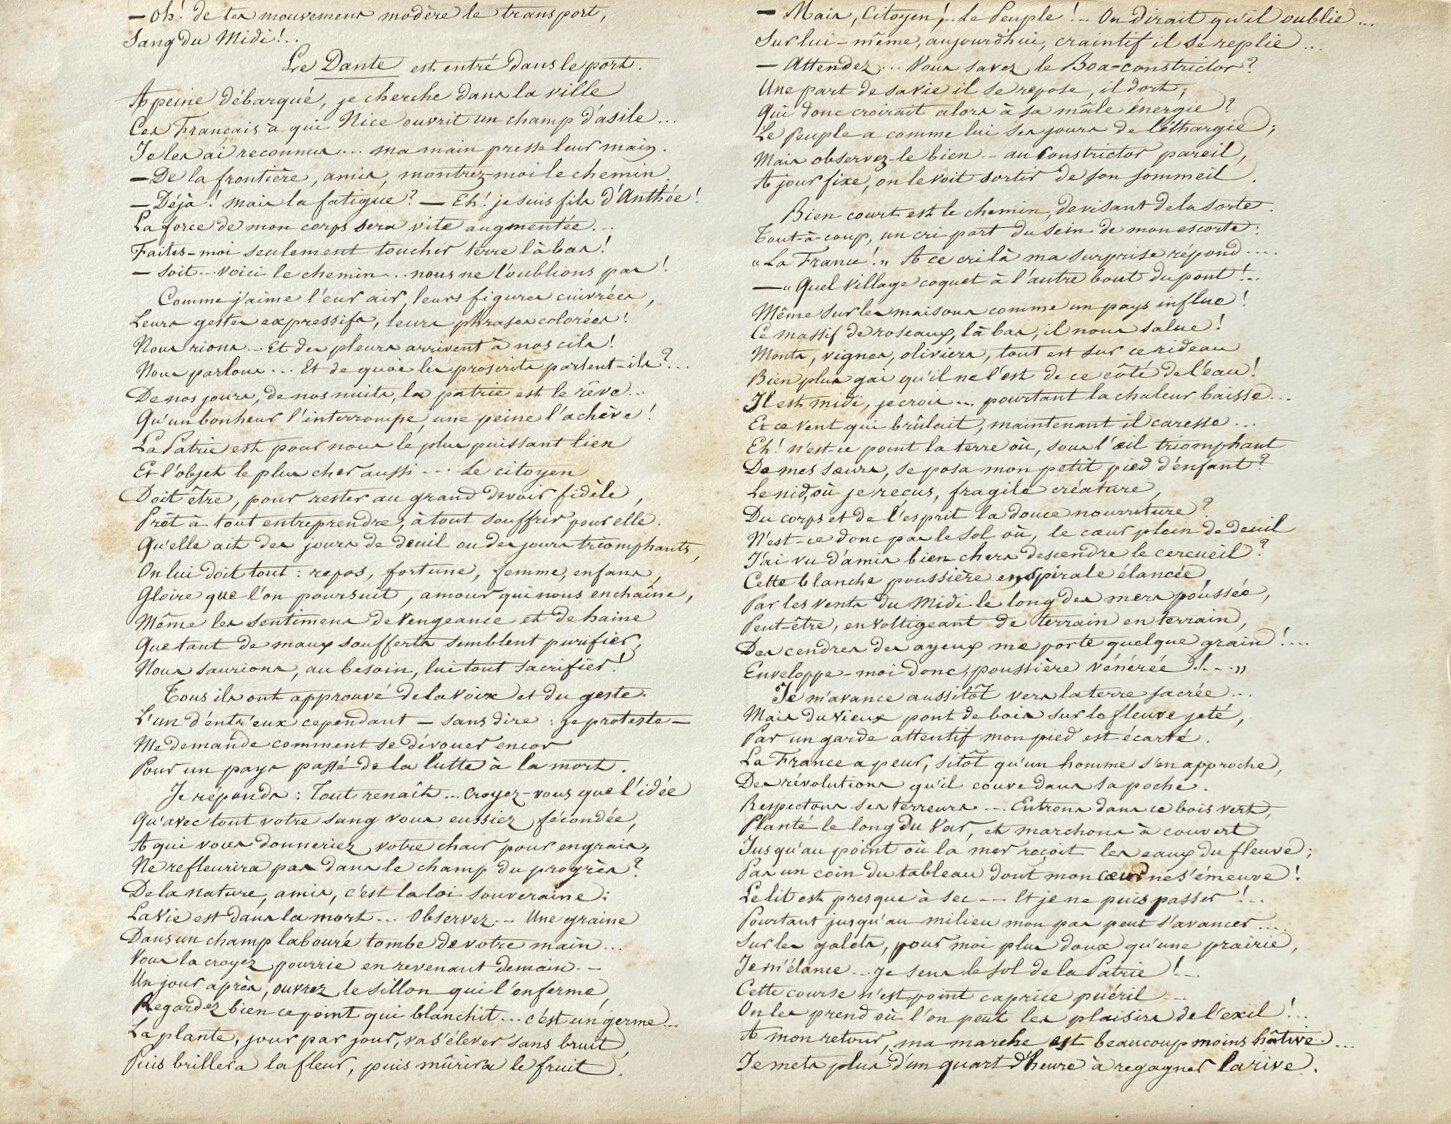 — Oh! de tes mouvemens modère le transport,
Sang du Midi!..
Le Dante est entré dans le port.
A peine débarqué, je cherche dans la ville
Ces Français à qui Nice ouvrit un champ d'asile...
Je les ai reconnus... ma main presse leur main.
— De la frontière, amis, montrez-moi le chemin.
— Déjà! mais la fatigue? — Eh! je suis fils d'Anthée!
La force de mon corps sera vite augmentée...
Faites-moi seulement toucher terre là bas!
— Soit... voici le chemin... nous ne l'oublions pas!
Comme j'aime l'eur air, leurs figures cuivrées,
Leurs gestes expressifs, leurs phrases colorées!
Nous rions... Et des pleurs arrivent à nos cils!
Nous parlons... Et de quoi les proscrits parlent-ils?...
De nos jours, de nos nuits, la patrie est le rêve...
Qu'un bonheur l'interrompe, une peine l'achève!
La Patrie est pour nous le plus puissant lien
Et l'objet le plus cher aussi... Le citoyen
Doit être, pour rester au grand devoir fidèle,
Prêt à tout entreprendre, à tout souffrir pour elle.
Qu'elle ait des jours de deuil ou des jours triomphants,
On lui doit tout: repos, fortune, femme, enfans,
Gloire que l'on poursuit, amour qui nous enchaîne,
Même les sentimens de vengeance et de haine
Que tant de maux soufferts semblent purifier,
Nous saurions, au besoin, lui tout sacrifier!
Tous ils ont approuvé de la voix et du geste.
L'un d'entr'eux cependant — sans dire: je proteste —
Me demande comment se dévouer encor
Pour un pays passé de la lutte à la mort.
Je réponds: Tout renaît... croyez-vous que l'idée
Qu'avec tout votre sang vous eussiez fécondée,
A qui vous donneriez votre chair pour engrais,
Ne refleurira pas dans le champ du progrès?
De la nature, amis, c'est la loi souveraine:
La vie est dans la mort... Observez... Une graine
Dans un champ labouré tombe de votre main...
Vous la croyez pourrie en revenant demain...
Un jour après, ouvrez le sillon qui l'enferme,
Regardez bien ce point qui blanchit... c'est un germe...
La plante, jour par jour, va s'élever sans bruit,
Puis brillera la fleur, puis mûrira le fruit.
— Mais, Citoyen!.. Le Peuple!.. On dirait qu'il oublie...
Sur lui-même, aujourdhui, craintif il se replie...
— Attendez... Vous savez le Boa-constrictor?
Une part de sa vie il se repose, il dort;
Qui donc croirait alors à sa mâle énergie?
Le Peuple a comme lui ses jours de léthargie;
Mais observez-le bien... au Constrictor pareil,
A jour fixe, on le voit sortir de son sommeil.
Bien court est le chemin, devisant de la sorte.
Tout-à-coup, un cri part du sein de mon escorte:
«La France!» A ce cri là ma surprise répond....
— «Quel village coquet à l'autre bout du pont!..
Même sur les maisons comme un pays influe!
Ce massif de roseaux, là bas, il nous salue!
Monts, vignes, oliviers, tout est sur ce rideau
Bien plus gai qu'il ne l'est de ce côté de l'eau!
Il est midi, je crois... pourtant la chaleur baisse...
Et ce vent qui brûlait, maintenant il caresse...
Eh! n'est-ce point la terre où, sous l'œil triomphant
De mes sœurs, se posa mon petit pied d'enfant?
Le nid, où je reçus, fragile créature,
Du corps et de l'esprit la douce nourriture?
N'est-ce donc pas le sol où, le cœur plein de deuil
J'ai vu d'amis bien chers descendre le cercueil?
Cette blanche poussière en spirale élancée,
Par les vents du Midi le long des mers poussée,
Peut-être, en voltigeant de terrain en terrain,
Des cendres des ayeux me porte quelque grain!...
Enveloppe-moi donc, poussière vénérée!...»
Je m'avance aussitôt vers la terre sacrée...
Mais du vieux pont de bois sur le fleuve jeté,
Par un garde attentif mon pied est écarté.
La France a peur, sitôt qu'un homme s'en approche,
Des révolutions qu'il couve dans sa poche.
Respectons ses terreurs... Entrons dans ce bois vert,
Planté le long du Var, et marchons à couvert
Jusqu'au point où la mer reçoit les eaux du fleuve;
Pas un coin du tableau dont mon cœur ne s'émeuve!
Le lit est presque à sec... Et je ne puis passer!...
Pourtant jusqu'au milieu mon pas peut s'avancer....
Sur les galets, pour moi plus doux qu'une prairie,
Je m'élance... je sens le sol de la Patrie!...
Cette course n'est point caprice puéril...
On les prend où l'on peut les plaisirs de l'exil!...
A mon retour, ma marche est beaucoup moins hâtive...
Je mets plus d'un quart d'heure à regagner la rive.